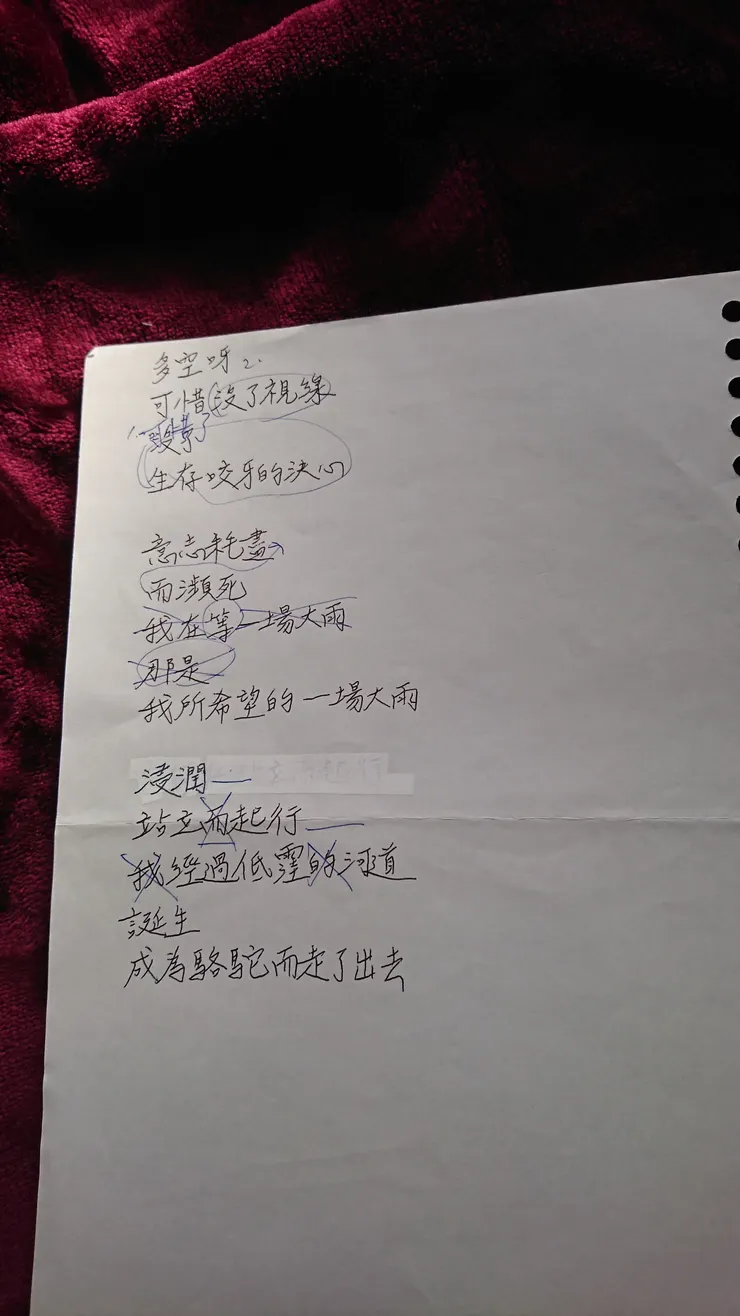 多空呀 2.
可惜沒了視線
1. 毀棄了
生存咬牙的決心
意志耗盡
而瀕死
我在等一場大雨
那是
我所希望的一場大雨
浸潤——
站立而起行——
我經過低窪的河道
誕生
成為駱駝而走了出去